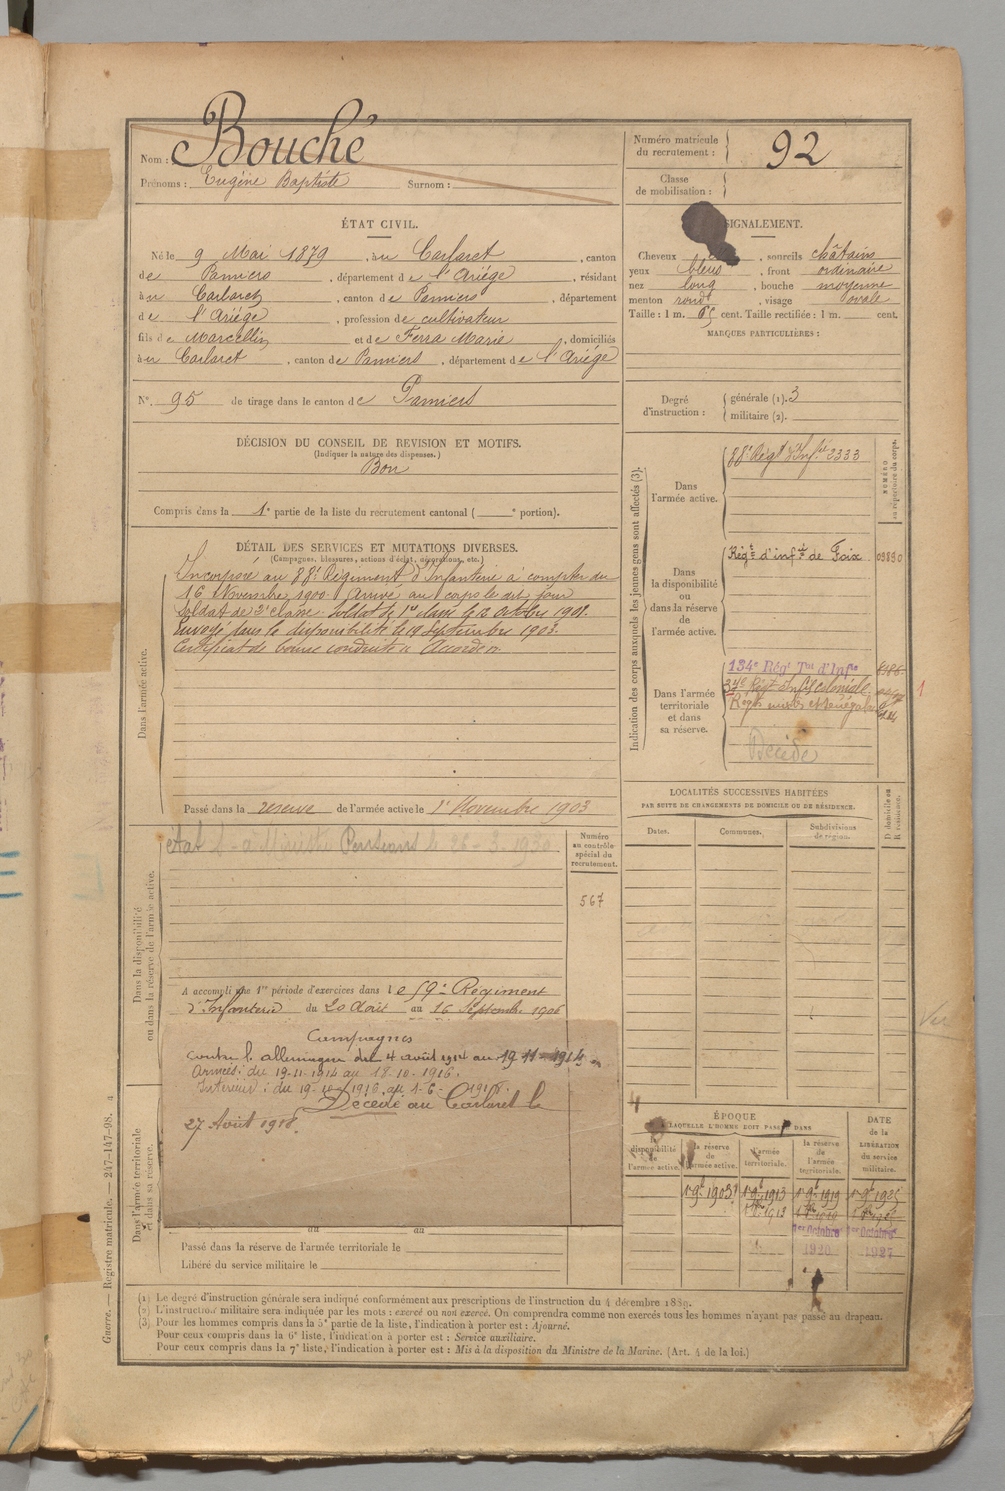 Nom : Bouché
Prénoms : Eugène Baptiste Surnom :
Numéro matricule du recrutement : 92
Classe de mobilisation :
ÉTAT CIVIL.
Né le 9 Mai 1879, à u Carlaret, canton
de Pamiers, département de l'Ariège, résidant
à u Carlaret, canton de Pamiers, département
de l'Ariège, profession de cultivateur
fils de Marcellin et de Ferra Marie, domiciliés
à u Carlaret, canton de Pamiers, département de l'Ariège
N° 95 de tirage dans le canton de Pamiers
SIGNALEMENT.
Cheveux, sourcils châtains
yeux bleus, front ordinaire
nez long, bouche moyenne
menton rond, visage ovale
Taille : 1 m. 65 cent. Taille rectifiée : 1 m. cent.
MARQUES PARTICULIÈRES :
Degré d'instruction : générale (1). 3
militaire (2).
DÉCISION DU CONSEIL DE REVISION ET MOTIFS.
(Indiquer la nature des dispenses.)
Bon
Compris dans la 1e partie de la liste du recrutement cantonal ( e portion).
DÉTAIL DES SERVICES ET MUTATIONS DIVERSES.
(Campagnes, blessures, actions d'éclat, décorations, etc.)
Dans l'armée active.
Incorporé au 88e Régiment d'Infanterie à compter du
16 Novembre 1900. Arrivé au corps le dit jour
soldat de 2e classe. Soldat de 1re classe le 12 Octobre 1901.
Envoyé dans la disponibilité le 19 Septembre 1903.
Certificat de bonne conduite "Accordé"
Passé dans la réserve de l'armée active le 1er Novembre 1903
Indication des corps auxquels les jeunes gens sont affectés (3).
NUMÉRO au répertoire du corps.
Dans l'armée active.
88e Régt d'Infie 2333
Dans la disponibilité ou dans la réserve de l'armée active.
Régt d'infie de Foix 03890
Dans l'armée territoriale et dans sa réserve.
134e Régt Tal d'Infie
34e Régt Infie coloniale
Décédé
LOCALITÉS SUCCESSIVES HABITÉES
PAR SUITE DE CHANGEMENTS DE DOMICILE OU DE RÉSIDENCE.
Dates. Communes. Subdivisions de région. D domicile ou R résidence.
Dans la disponibilité ou dans la réserve de l'armée active.
Numéro au contrôle spécial du recrutement.
567
A accompli une 1re période d'exercices dans le 59e Régiment
d'Infanterie du 20 Août au 16 Septembre 1906
Campagnes
contre l'allemagne du 4 août 1914 au 19 11 1914
Armées : du 19-11-1914 au 18-10-1916.
Intérieur : du 19-10-1916 au 1-6-1918.
Décédé au Carlaret le
27 Août 1918.
Dans l'armée territoriale et dans sa réserve.
du au
Passé dans la réserve de l'armée territoriale le
Libéré du service militaire le
ÉPOQUE
À LAQUELLE L'HOMME DOIT PASSER DANS
la disponibilité de l'armée active. la réserve de l'armée active. l'armée territoriale. la réserve de l'armée territoriale.
DATE de la LIBÉRATION du service militaire.
1er 9bre 1903 1er 9bre 1913 1er 9bre 1919 1er 9bre 1925
1er Octobre 1er Octobre
1920 1927
(1) Le degré d'instruction générale sera indiqué conformément aux prescriptions de l'instruction du 4 décembre 1889.
(2) L'instruction militaire sera indiquée par les mots : exercé ou non exercé. On comprendra comme non exercés tous les hommes n'ayant pas passé au drapeau.
(3) Pour les hommes compris dans la 5e partie de la liste, l'indication à porter est : Ajourné.
Pour ceux compris dans la 6e liste, l'indication à porter est : Service auxiliaire.
Pour ceux compris dans la 7e liste, l'indication à porter est : Mis à la disposition du Ministre de la Marine. (Art. 4 de la loi.)
Guerre. — Registre matricule. — 247-147-98.